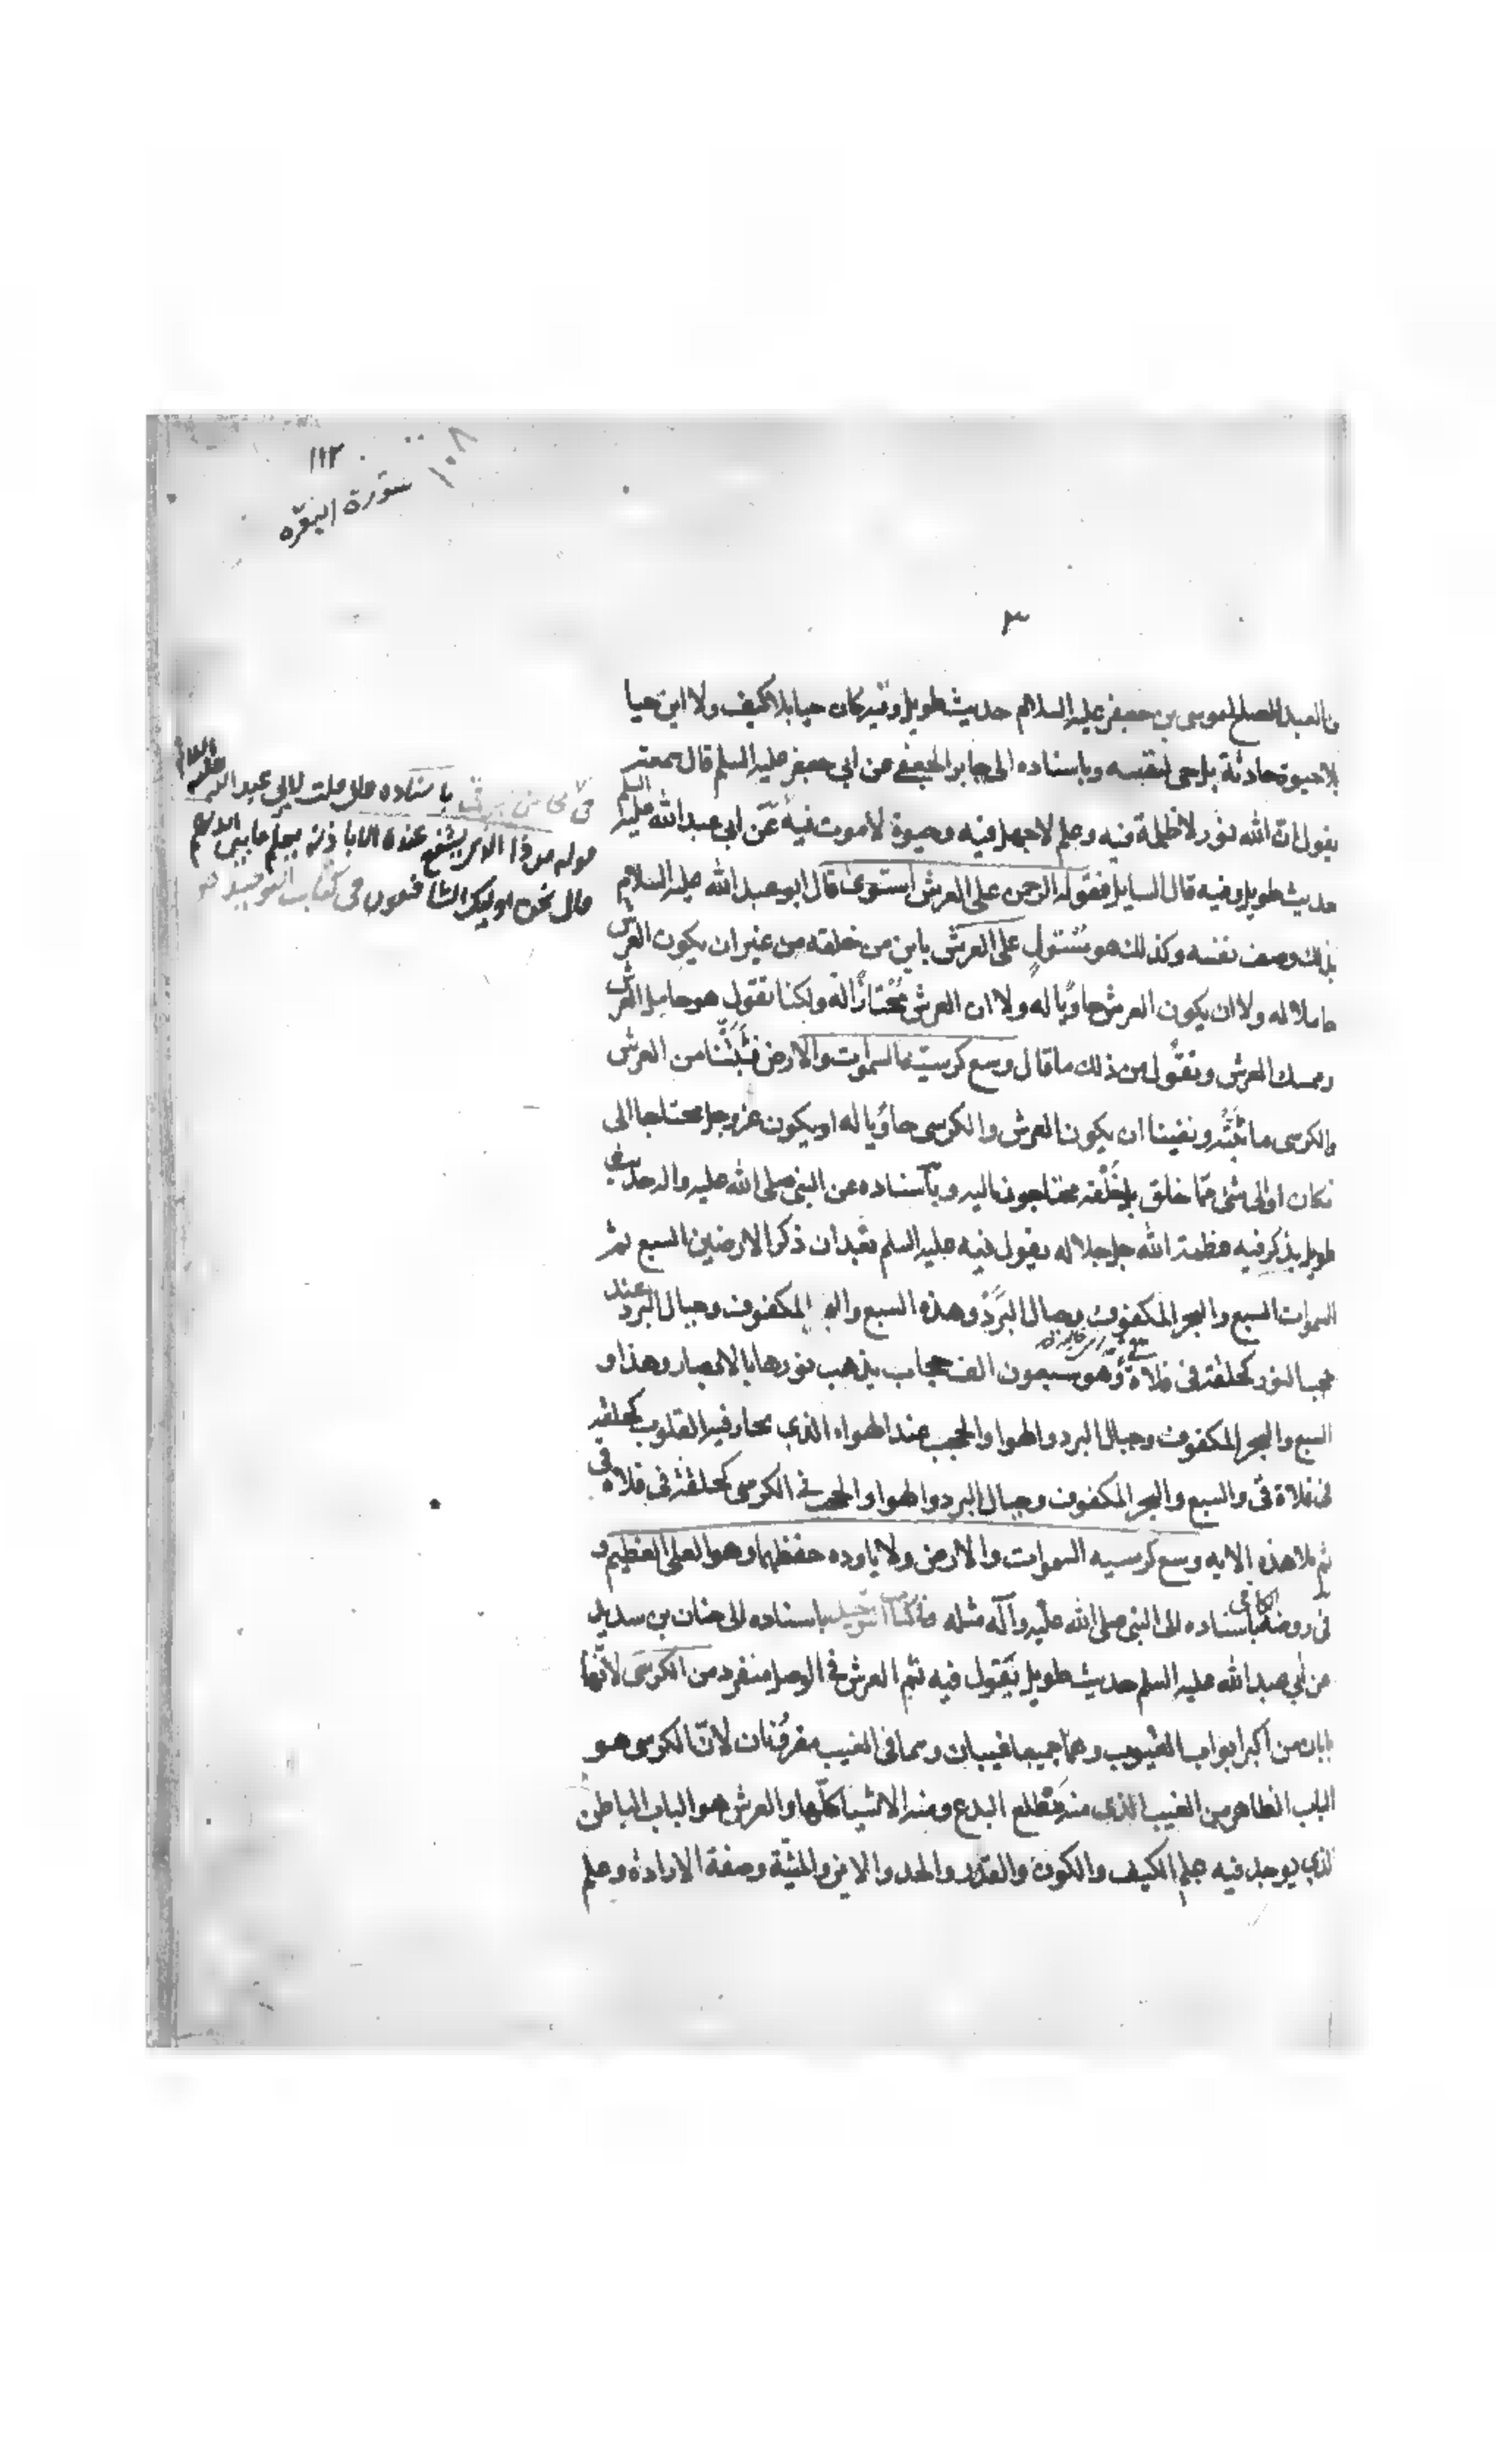 ١١٢
١٠٨
سورة البقره
٣
ن العبد الصلح لموسى بن جعفر عليه السلام حديث طويل وفيه كان حيا بلا كيف ولا اين حيا
بلا حيوة حادثة بل حى لنفسه وباسناده الى جابر الجعفى عن ابي جعفر عليه السلم قال سمعته
يقول ان الله نور لا ظلمة فيه وعلم لا جهل فيه وحيوة لا موت فيه عن ابي عبد الله عليه السلم
حديث طويل وفيه قال السايل فقوله الرحمن على العرش استوى قال ابو عبد الله عليه السلام
بذلك وصف نفسه وكذلك هو مستول على العرش باين من خلقه من غير ان يكون العرش
حاملا له ولا ان يكون العرش حاويا له ولا ان العرش محتازا له ولكنا نقول هو حامل العرش
وممسك العرش ونقول من ذلك ما قال وسع كرسيه السموت والارض فثبتنا من العرش
والكرسى ما ثبته ونفينا ان يكون العرش والكرسى حاويا له او يكون عز وجل محتاجا الى
مكان او الى شئ مما خلق بل خلقه محتاجون اليه وباسناده عن النبى صلى الله عليه واله حديث
طويل يذكر فيه عظمة الله جل جلاله يقول فيه عليه السلم بعد ان ذكر الارضين السبع ثم
السموات السبع والبحر المكفوف وجبال البرد وهذه السبع والبحر المكفوف وجبال البرد عند
حجب النور كحلقة فى فلاة وهو سبعون الف حجاب يذهب نورها بالابصار وهذا و
السبع والبحر المكفوف وجبال البرد والهوا والحجب عند الهواء الذى تحار فيه القلوب كحلقة
فى فلاة قى والسبع والبحر المكفوف وجبال البرد والهوا والحجب فى الكرسى كحلقة فى فلاة قى
ثم تلا هذه الايه وسع كرسيه السموات والارض ولا ياوده حفظهما وهو العلى العظيم و
فى روضة الكافى باسناده الى النبى صلى الله عليه وآله مثله فى كتاب التوحيد باسناده الى حنان بن سدير
عن ابي عبد الله عليه السلم حديث طويل يقول فيه ثم العرش فى الوصل منفرد من الكرسى لانهما
بابان من اكبر ابواب الغيوب وهما جميعا غيبان وهما فى الغيب مقرونان لان الكرسى هو
الباب الظاهر من الغيب الذى منه مطلع البدع ومنه الاشيا كلها والعرش هو الباب الباطن
الذى يوجد فيه علم الكيف والكون والقدر والحد والاين والمشية وصفة الارادة وعلم
فى محاسن برقى باسناده قال قلت لابي عبد الله عليه السلام
قوله من ذا الذى يشفع عنده الا باذنه يعلم ما بين ايديهم
قال نحن اوليك الشافعون فى كتاب التوحيد